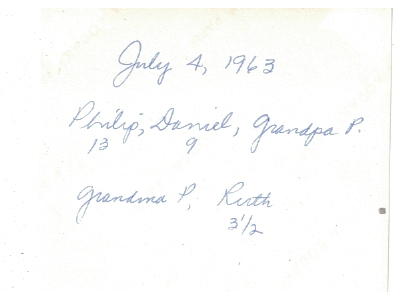 July 4, 1963
Philip, Daniel, Grandpa P.
13 9
Grandma P, Ruth
3 1/2